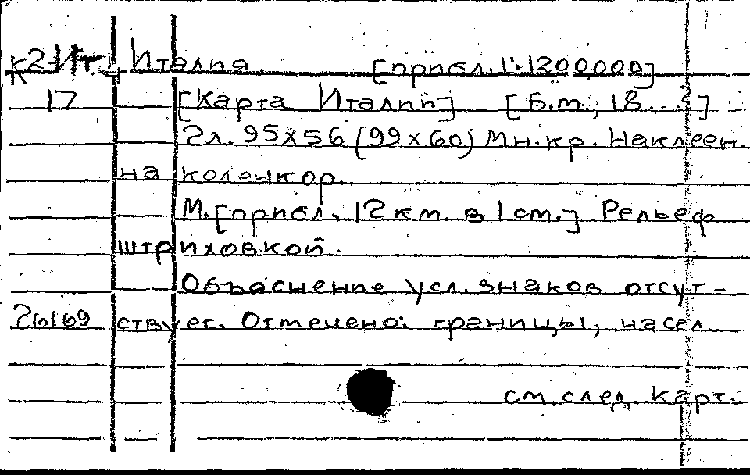 К2-Ит Италия [прибл. 1:1200000]
17 [Карта Италии] [Б.м., 18...?]
2л. 95х56 (99х60) Мн.кр. Наклеен.
на коленкор.
М. [прибл. 12 км. в 1 см.] Рельеф
штриховкой.
Объяснение усл. знаков отсут-
26169 ствует. Отмечено: границы, насел
см. след. карт.